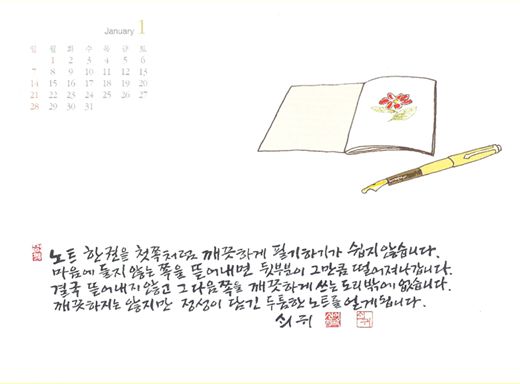 January 1
일 월 화 수 목 금 토
1 2 3 4 5 6
7 8 9 10 11 12 13
14 15 16 17 18 19 20
21 22 23 24 25 26 27
28 29 30 31
노트 한 권을 첫쪽처럼 깨끗하게 필기하기가 쉽지 않습니다.
마음에 들지 않는 쪽을 뜯어내면 뒷부분이 그만큼 떨어져나갑니다.
결국 뜯어내지 않고 그 다음쪽을 깨끗하게 쓰는 도리밖에 없습니다.
깨끗하지는 않지만 정성이 담긴 두툼한 노트를 얻게 됩니다.
쇠귀